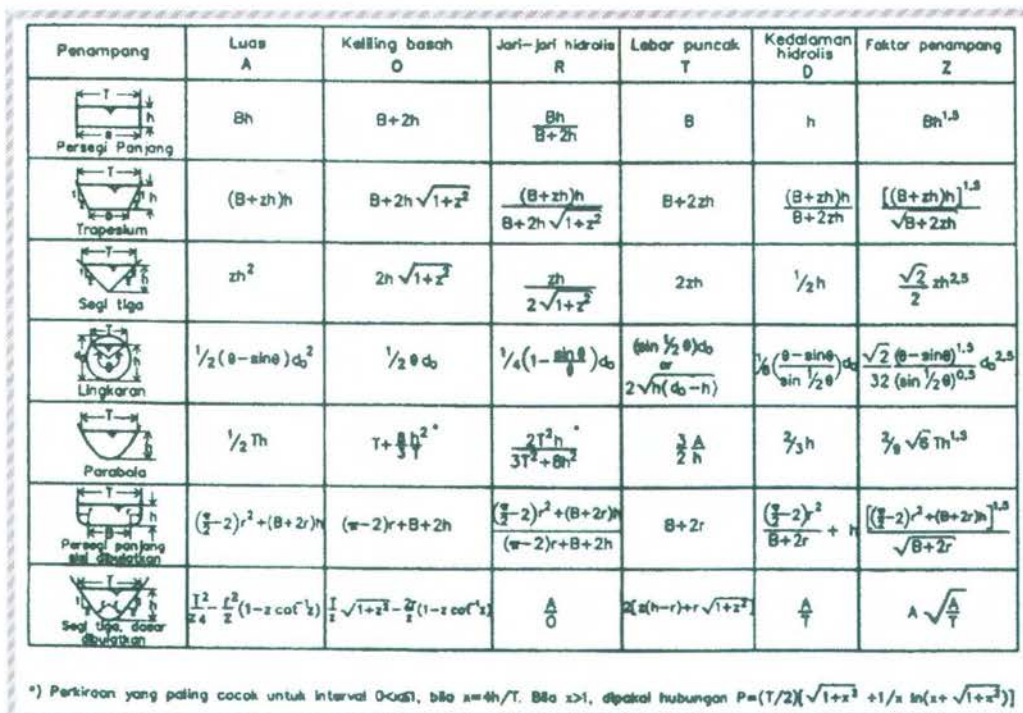 Penampang Luas A Keliling basah O Jari-jari hidrolis R Lebar puncak T Kedalaman hidrolis D Faktor penampang Z
T h B
Persegi Panjang Bh B+2h Bh/(B+2h) B h Bh^1,5
T 1 1 h B
Trapesium (B+zh)h B+2h√(1+z²) (B+zh)h/(B+2h√(1+z²)) B+2zh (B+zh)h/(B+2zh) [(B+zh)h]^1,5/√(B+2zh)
T h
Segi tiga zh² 2h√(1+z²) zh/(2√(1+z²)) 2zh ½h (√2/2) zh^2,5
T h
Lingkaran ½(θ-sinθ)d₀² ½θd₀ ¼(1-sinθ/θ)d₀ (sin ½θ)d₀ or 2√(h(d₀-h)) ⅛((θ-sinθ)/(sin ½θ))d₀ (√2/32) ((θ-sinθ)^1,5/(sin ½θ)^0,5) d₀^2,5
T h
Parabola ½Th T+(8/3)(h²/T)* 2T²h/(3T²+8h²)* (3/2)(A/h) ⅔h 2/9 √6 Th^1,5
T h B
Persegi panjang sisi dibulatkan (π/2-2)r²+(B+2r)h (π-2)r+B+2h ((π/2-2)r²+(B+2r)h)/((π-2)r+B+2h) B+2r ((π/2-2)r²)/(B+2r) + h [(π/2-2)r²+(B+2r)h]^1,5/√(B+2r)
T h
Segi tiga, dasar dibulatkan T²/z4 - r²/z (1-z cot⁻¹z) T/z √(1+z²) - 2r/z (1-z cot⁻¹z) A/O 2[z(h-r)+r√(1+z²)] A/T A√(A/T)
*) Perkiraan yang paling cocok untuk interval 0<x≤1, bila x=4h/T. Bila x>1, dipakai hubungan P=(T/2)[√(1+x²) +1/x ln(x+ √(1+x²))]